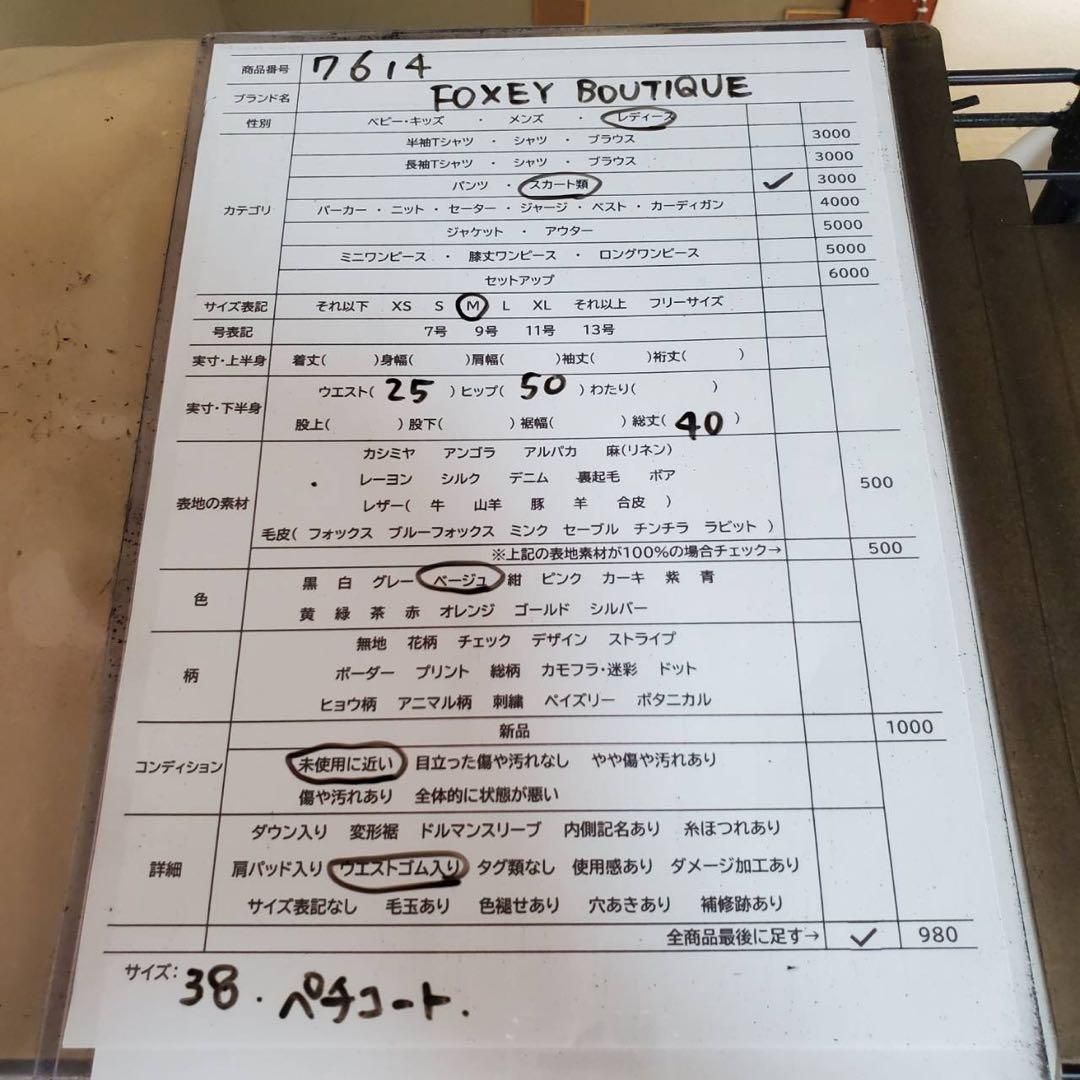 商品番号 7614
ブランド名 FOXEY BOUTIQUE
性別 ベビー・キッズ ・ メンズ ・ レディース
半袖Tシャツ ・ シャツ ・ ブラウス 3000
長袖Tシャツ ・ シャツ ・ ブラウス 3000
パンツ ・ スカート類 ✓ 3000
カテゴリ パーカー ・ ニット ・ セーター ・ ジャージ ・ ベスト ・ カーディガン 4000
ジャケット ・ アウター 5000
ミニワンピース ・ 膝丈ワンピース ・ ロングワンピース 5000
セットアップ 6000
サイズ表記 それ以下 XS S M L XL それ以上 フリーサイズ
号表記 7号 9号 11号 13号
実寸・上半身 着丈( )身幅( )肩幅( )袖丈( )裄丈( )
実寸・下半身 ウエスト( 25 )ヒップ( 50 )わたり( )
股上( )股下( )裾幅( )総丈( 40 )
カシミヤ アンゴラ アルパカ 麻(リネン)
レーヨン シルク デニム 裏起毛 ボア 500
表地の素材 レザー( 牛 山羊 豚 羊 合皮 )
毛皮( フォックス ブルーフォックス ミンク セーブル チンチラ ラビット )
※上記の表地素材が100%の場合チェック→ 500
色 黒 白 グレー ベージュ 紺 ピンク カーキ 紫 青
黄 緑 茶 赤 オレンジ ゴールド シルバー
無地 花柄 チェック デザイン ストライプ
柄 ボーダー プリント 総柄 カモフラ・迷彩 ドット
ヒョウ柄 アニマル柄 刺繍 ペイズリー ボタニカル
新品 1000
コンディション 未使用に近い 目立った傷や汚れなし やや傷や汚れあり
傷や汚れあり 全体的に状態が悪い
ダウン入り 変形裾 ドルマンスリーブ 内側記名あり 糸ほつれあり
詳細 肩パッド入り ウエストゴム入り タグ類なし 使用感あり ダメージ加工あり
サイズ表記なし 毛玉あり 色褪せあり 穴あきあり 補修跡あり
全商品最後に足す→ ✓ 980
サイズ: 38. ペチコート.